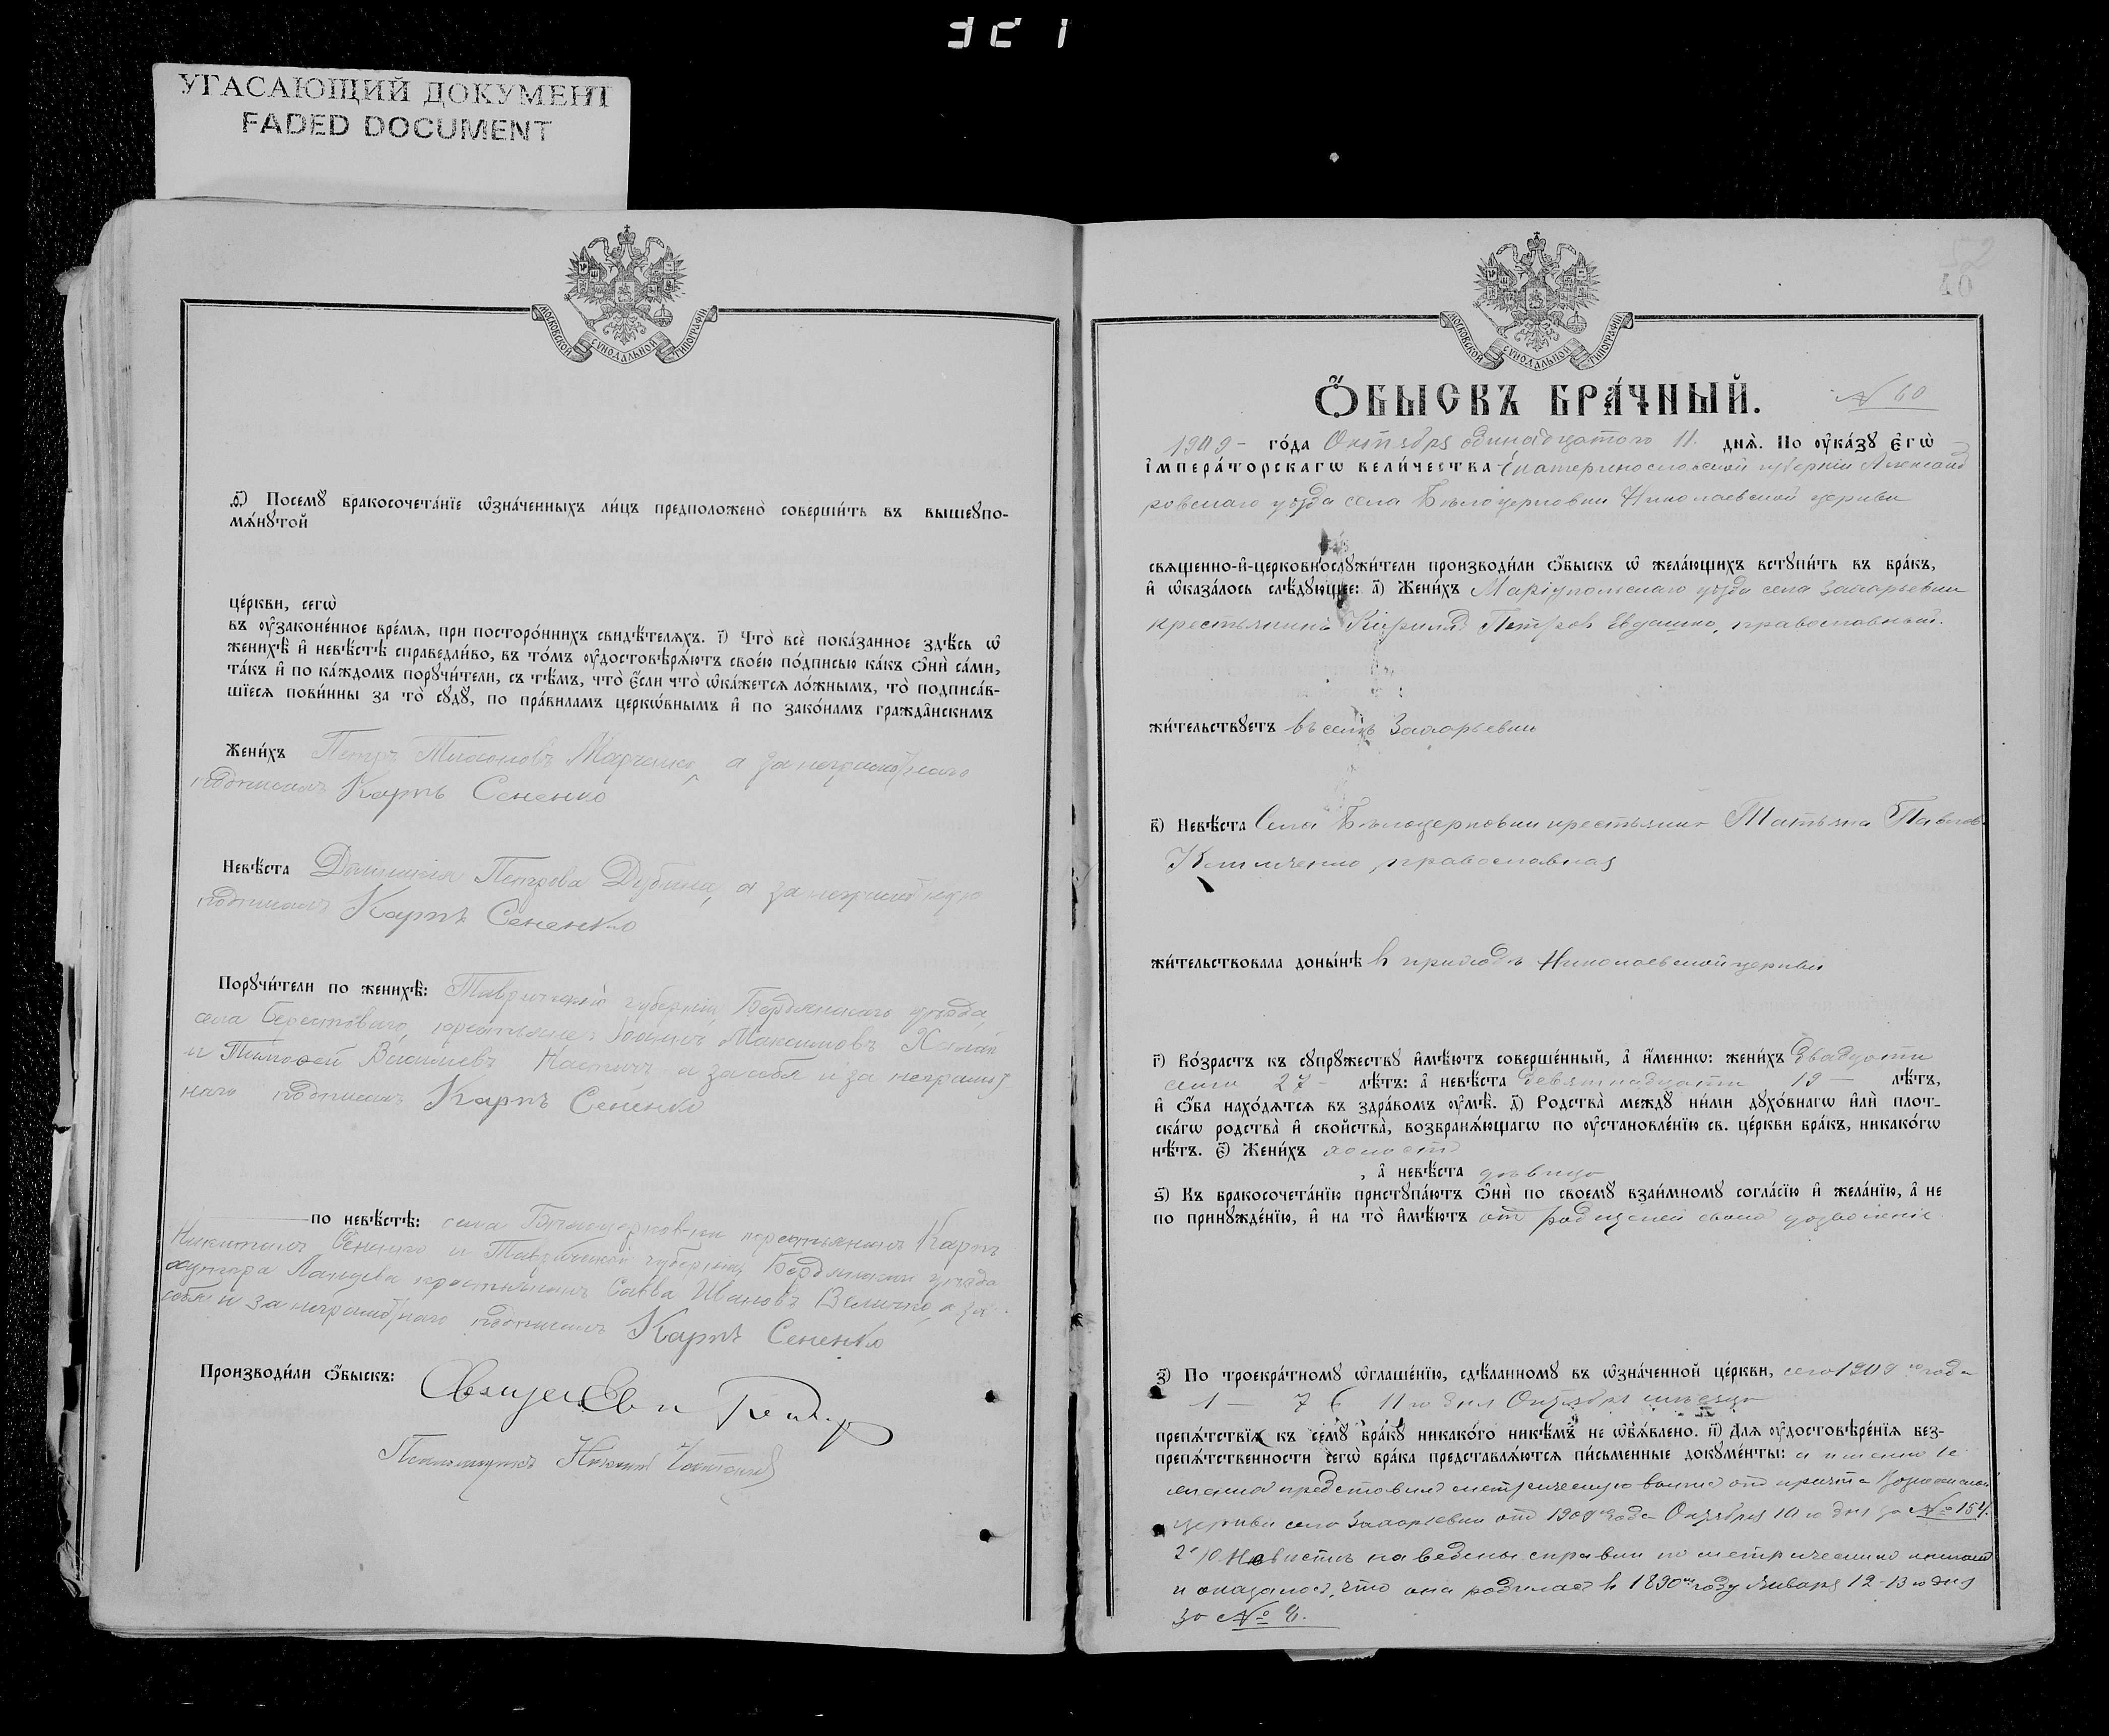 321
УГАСАЮЩИЙ ДОКУМЕНТ
FADED DOCUMENT
МОСКОВСКОЙ СУНОДАЛЬНОЙ ТИПОГРАФІИ
ѳ҃) Посемꙋ̀ бракосочета́нїе ѡ҆зна́ченныхъ ли́цъ предположено̀ соверши́ть въ вышеꙋпо-
мѧ́нꙋтой
це́ркви, сегѡ̀
въ ᲂу҆законе́нное вре́мѧ, при посторо́ннихъ свидѣ́телѧхъ. і҃) Что̀ всѐ пока́занное здѣ́сь ѡ҆
женихѣ̀ и҆ невѣ́стѣ справедли́во, въ то́мъ ᲂу҆достовѣрѧ́ютъ свое́ю по́дписью ка́къ ѻ҆нѝ са́ми,
та́къ и҆ по ка́ждомъ порꙋчи́тели, съ тѣ́мъ, что̀ є҆́сли что̀ ѡ҆ка́жетсѧ ло́жнымъ, то̀ подписа́в-
шїесѧ пови́нны за то̀ сꙋдꙋ̀, по пра́виламъ церкѡ́внымъ и҆ по зако́намъ гражда̂нскимъ
Жени́хъ Петръ Тихоновъ Марченко, а за неграмотнаго
подписалъ Карпъ Сененко
Невѣ́ста Петрова Дубина, а за неграмотную
подписалъ Карпъ Сененко
Порꙋчи́тели по женихѣ̀: Таврической губерніи Бердянскаго уѣзда,
села Берестоваго, крестьяне: Максимовъ
и Тимофей Васильевъ а за себя и за неграмот
наго подписалъ Карпъ Сененко
по невѣ́стѣ: села Бѣлоцерковки крестьянинъ Карпъ
Никитинъ Сененко и Таврической губерніи Бердянскаго уѣзда
хутора крестьянинъ Савва Ивановъ Величко, а за
себя и за неграмотнаго подписалъ Карпъ Сененко
Производи́ли ѻ҆́быскъ: Священникъ
Псаломщикъ
52
40
МОСКОВСКОЙ СУНОДАЛЬНОЙ ТИПОГРАФІИ
Ѻ҆́БЫСКЪ БРА́ЧНЫЙ. № 60
1909 – го́да Октября одинадцатого 11. днѧ̀. По ᲂу҆ка́зꙋ є҆гѡ̀
і҆мпера́торскагѡ вели́чества Екатеринославской губерніи Александ
ровскаго уѣзда села Бѣлоцерковки Николаевской церкви
свѧщенно-и҆-церковнослꙋжи́тели производи́ли ѻ҆́быскъ ѡ҆ жела́ющихъ встꙋпи́ть въ бра́къ,
и҆ ѡ҆каза́лось слѣ́дꙋющее: а҃) Жени́хъ Маріупольскаго уѣзда села Захарьевки
крестьянинъ Кириллъ Петровъ Евдошко, православный.
жи́тельствꙋетъ въ селѣ Захарьевки
в҃) Невѣ́ста Села Бѣлоцерковки крестьянка Татьяна Павлов
православная
жи́тельствовала доны́нѣ в приходѣ Николаевской церкви
г҃) Во́зрастъ къ сꙋпрꙋ́жествꙋ и҆мѣ́ютъ соверше́нный, а҆ и҆́меннѡ: жени́хъ двадцати
семи 27 – лѣ́тъ: а҆ невѣ́ста девятнадцати 19 – лѣ́тъ,
и҆ ѻ҆́ба нахо́дѧтсѧ въ здра́вомъ ᲂу҆мѣ̀. д҃) Родства̀ междꙋ̀ ни́ми дꙋхо́внагѡ и҆лѝ плот-
ска́гѡ родства̀ и҆ свойства̀, возбранѧ́ющагѡ по ᲂу҆становле́нїю св. це́ркви бра́къ, никако́гѡ
нѣ́тъ. є҃) Жени́хъ холост
, а҆ невѣ́ста дѣвица
ѕ҃) Къ бракосочета́нїю пристꙋпа́ютъ ѻ҆нѝ по своемꙋ̀ взаи́мномꙋ согла́сїю и҆ жела́нїю, а҆ не
по принꙋжде́нїю, и҆ на то̀ и҆мѣ́ютъ от родителей своих дозволеніе
з҃) По троекра́тномꙋ ѡ҆глаше́нїю, сдѣ́ланномꙋ въ ѡ҆зна́ченной це́ркви, сего 1909 го года
1 – 7 и 11 го дня Октября мѣсяца
препѧ́тствїѧ къ семꙋ̀ бра́кꙋ никако́го никѣ́мъ не ѡ҆б̾ѧ́влено. и҃) Длѧ ᲂу҆достовѣре́нїѧ без-
препѧ́тственности сегѡ̀ бра́ка представлѧ́ютсѧ пи́сьменные докꙋме́нты: а именно 1е
представил метрическую от причта
церкви села Захарьевки отъ 1909 года Октября 10 го дня за № 154.
2 е/ О невѣстѣ наведены справки по метрическим книгам
и оказалось, что она родилась в 1890 м году Января 12–13 го дня
за №